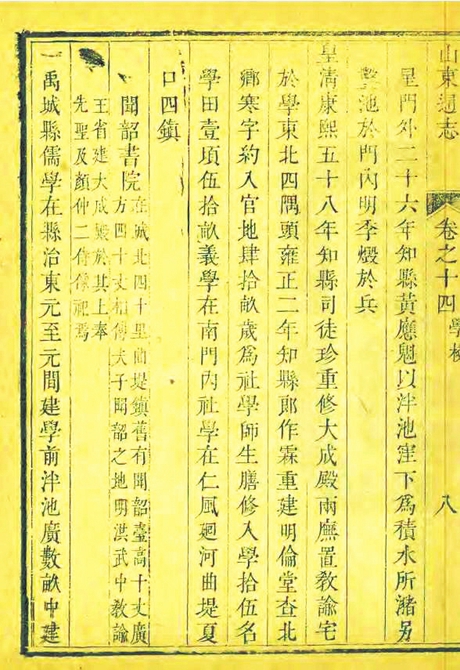 山東通志
卷之十四
學校
八
星門外二十六年知縣黃應魁以泮池窪下為積水所瀦另
鑿池於門內明季燬於兵
皇清康熙五十八年知縣司徒珍重修大成殿兩廡置敎諭宅
於學東北四隅頭雍正二年知縣郎作霖重建明倫堂查北
鄉寒字約入官地肆拾畝歲為社學師生膳修入學拾伍名
學田壹頃伍拾畝義學在南門內社學在仁風廻河曲堤夏
口四鎮
聞韶書院
在城北四十里曲堤鎮舊有聞韶臺高十丈廣
方四十丈相傳夫子聞韶之地明洪武中敎諭
王省建大成殿於其上奉
先聖及顏仲二侍像祀焉
一禹城縣儒學在縣治東元至元間建學前泮池廣數畝中建